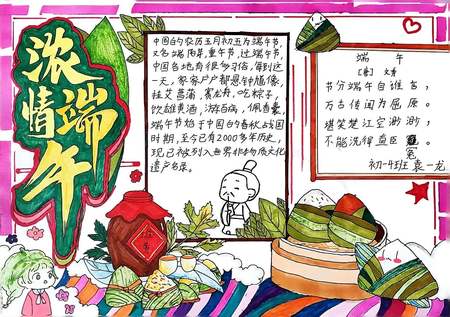 浓情端午
中国的农历五月初五为端午节,
又名端阳节,重午节,过端午节,
中国各地有很多习俗,每到这
一天,家家户户都悬钟馗像,
挂艾菖蒲,赛龙舟,吃粽子,
饮雄黄酒,游百病,佩香囊,
端午节始于中国的春秋战国
时期,至今已有2000多年历史,
现已被列入世界非物质文化
遗产名录。
端 午
[唐] 文秀
节分端午自谁言,
万古传闻为屈原。
堪笑楚江空渺渺,
不能洗得直臣冤
初一4班 袁一龙